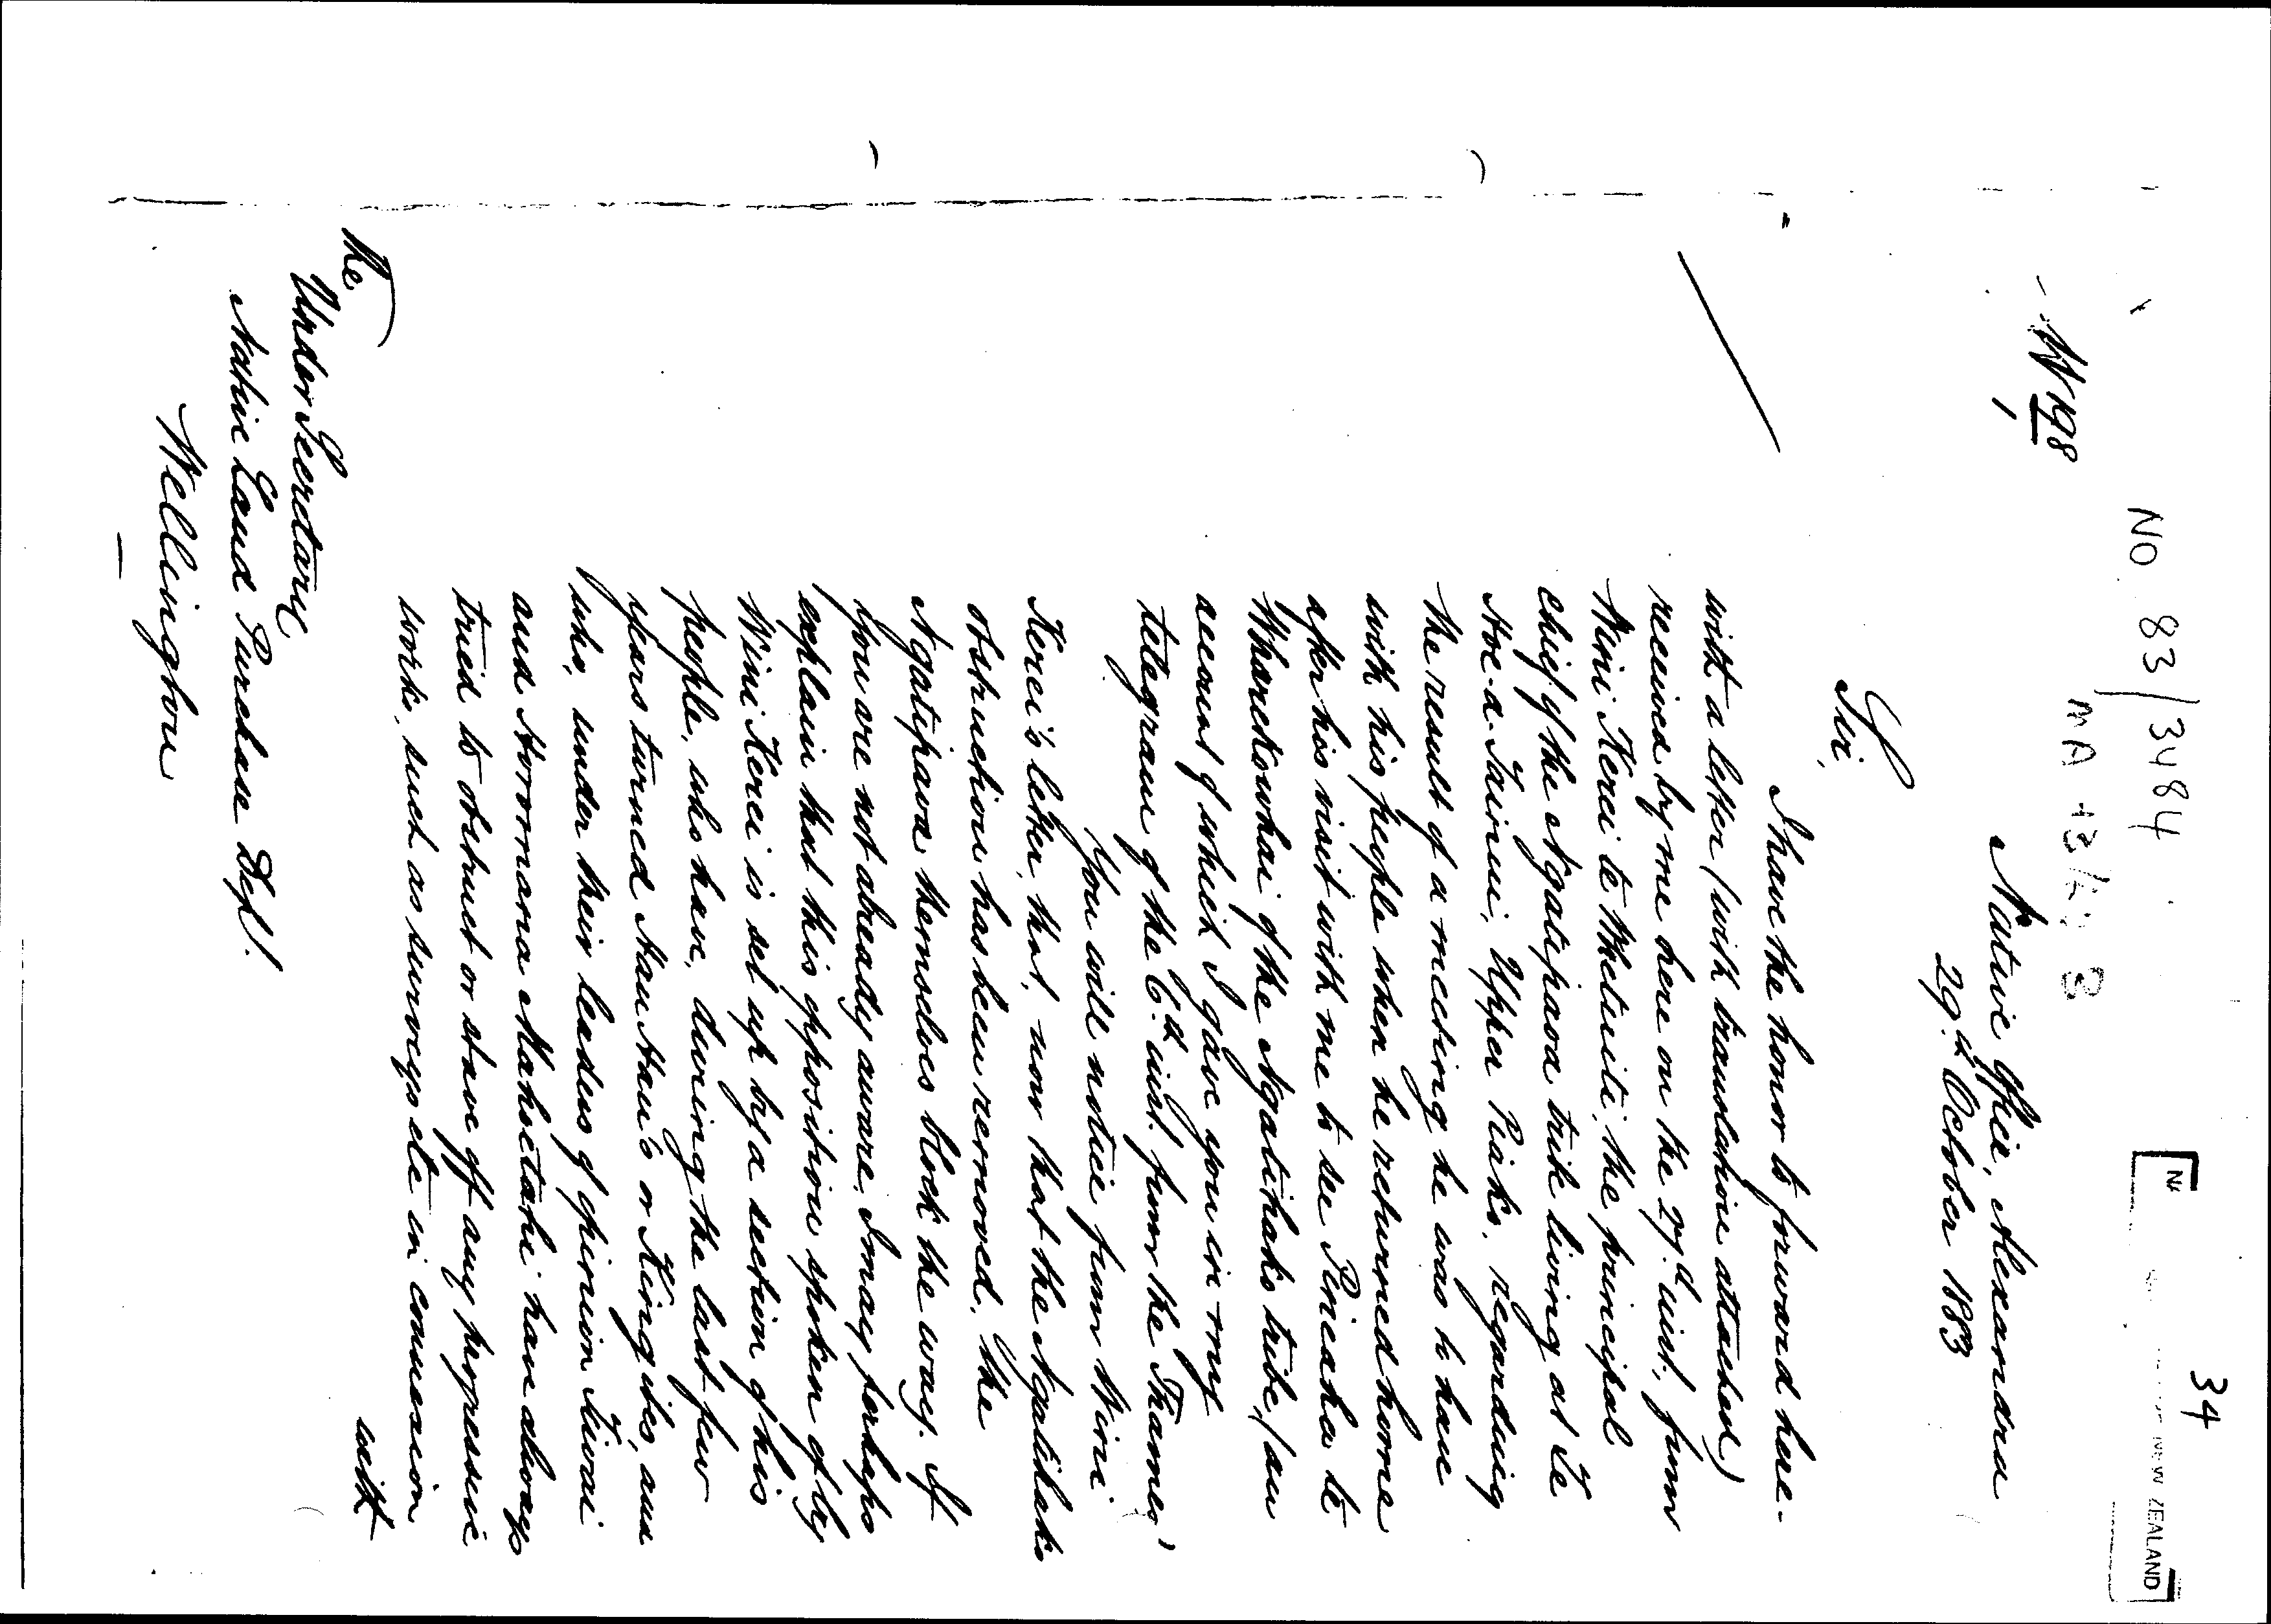 34
NO 83/3484
MA 13/ B
NEW ZEALAND
W 198
Native Office, Alexandra
29.th October 1883
Sir,
I have the honor to forward here-
with a letter (with translation attached)
received by me here on the inst. from
Wini Kerei te Whetuiti, the principal
chief of the Ngatipaoa tribe living at Te
Hoe-a-Tainui, Upper Piako, regarding
the result of a meeting he was to have
with his people when he returned home
after his visit with me to see Pineaha te
Wharekowhai of the Ngatihako tribe, (an
account of which I gave you in my
telegram of the 6.th inst. from the Thames)
You will notice from Wini
Kerei's letter, that, now that the Ngatihako
obstruction has been removed, the
Ngatipaoa themselves block the way. If
you are not already aware, I may perhaps
explain that this opposition spoken of by
Wini Kerei is set up by a section of his
people, who have, during the last few
years turned Hau Hau's or Kingites, and
who, under their leaders of opinion Tiwai
and Hoornana Mahoetahi have always
tried to obstruct or stave off any progressive
works, such as surveys etc in connexion
with
The
Under Secretary
Native Land Purchase Dept.
Wellington